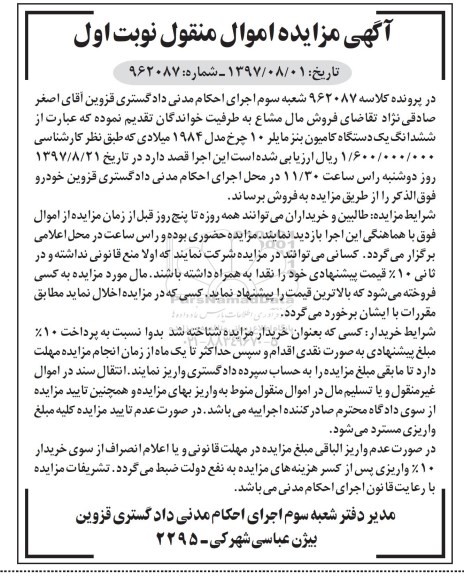 آگهی مزایده اموال منقول نوبت اول
تاریخ: ۱۳۹۷/۰۸/۰۱ـ شماره: ۹۶۲۰۸۷
در پرونده کلاسه ۹۶۲۰۸۷ شعبه سوم اجرای احکام مدنی دادگستری قزوین آقای اصغر
صادقی نژاد تقاضای فروش مال مشاع به طرفیت خواندگان تقدیم نموده که عبارت از
ششدانگ یک دستگاه کامیون بنز مایلر ۱۰ چرخ مدل ۱۹۸۴ میلادی که طبق نظر کارشناسی
۱/۶۰۰/۰۰۰/۰۰۰ ریال ارزیابی شده است این اجرا قصد دارد در تاریخ ۱۳۹۷/۸/۲۱
روز دوشنبه راس ساعت ۱۱/۳۰ در محل اجرای احکام مدنی دادگستری قزوین خودرو
فوق الذکر را از طریق مزایده به فروش برساند.
شرایط مزایده: طالبین و خریداران می توانند همه روزه تا پنج روز قبل از زمان مزایده از اموال
فوق با هماهنگی این اجرا بازدید نمایند. مزایده حضوری بوده و راس ساعت در محل اعلامی
برگزار می گردد. کسانی می توانند در مزایده شرکت نمایند که اولا منع قانونی نداشته و در
ثانی ۱۰٪ قیمت پیشنهادی خود را نقدا به همراه داشته باشند. مال مورد مزایده به کسی
فروخته می شود که بالاترین قیمت را پیشنهاد نماید. کسی که در مزایده اخلال نماید مطابق
مقررات با ایشان برخورد می گردد.
شرایط خریدار: کسی که بعنوان خریدار مزایده شناخته شد بدوا نسبت به پرداخت ۱۰٪
مبلغ پیشنهادی به صورت نقدی اقدام و سپس حداکثر تا یک ماه از زمان انجام مزایده مهلت
دارد تا مابقی مبلغ مزایده را به حساب سپرده دادگستری واریز نمایند. انتقال سند در اموال
غیرمنقول و یا تسلیم مال در اموال منقول منوط به واریز بهای مزایده و همچنین تایید مزایده
از سوی دادگاه محترم صادر کننده اجراییه می باشد. در صورت عدم تایید مزایده کلیه مبلغ
واریزی مسترد می شود.
در صورت عدم واریز الباقی مبلغ مزایده در مهلت قانونی و یا اعلام انصراف از سوی خریدار
۱۰٪ واریزی پس از کسر هزینه های مزایده به نفع دولت ضبط می گردد. تشریفات مزایده
با رعایت قانون اجرای احکام مدنی می باشد.
مدیر دفتر شعبه سوم اجرای احکام مدنی دادگستری قزوین
بیژن عباسی شهرکی ـ ۲۲۹۵